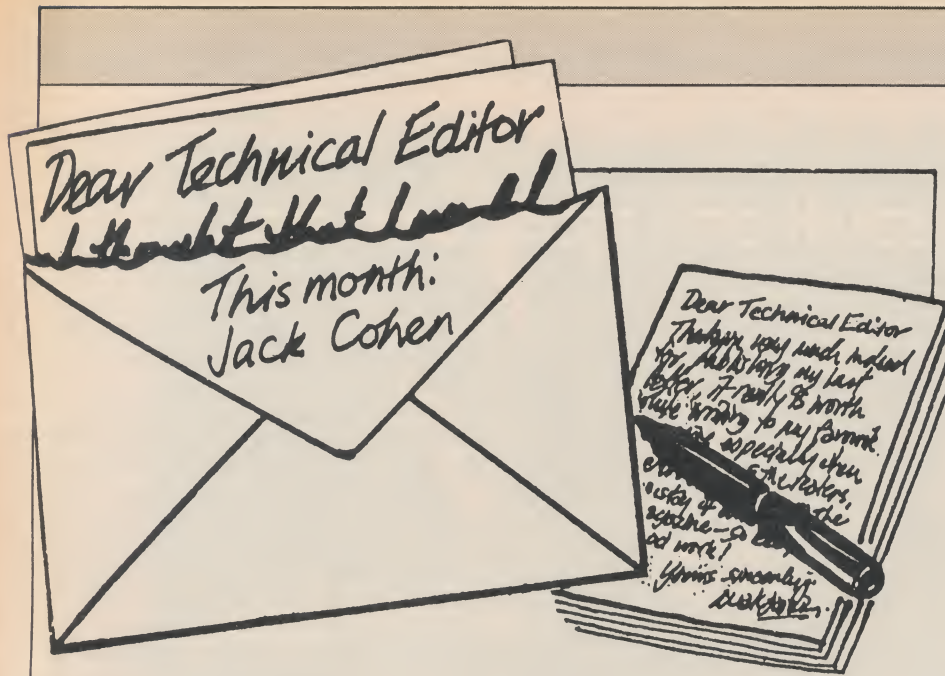 Dear Technical Editor
I thought that I would
This month:
Jack Cohen
Dear Technical Editor
Thank you very much indeed
for publishing my last
letter. It really is worth
while writing to my favourite
especially when
the readers,
of the
so
work!
Yours sincerely